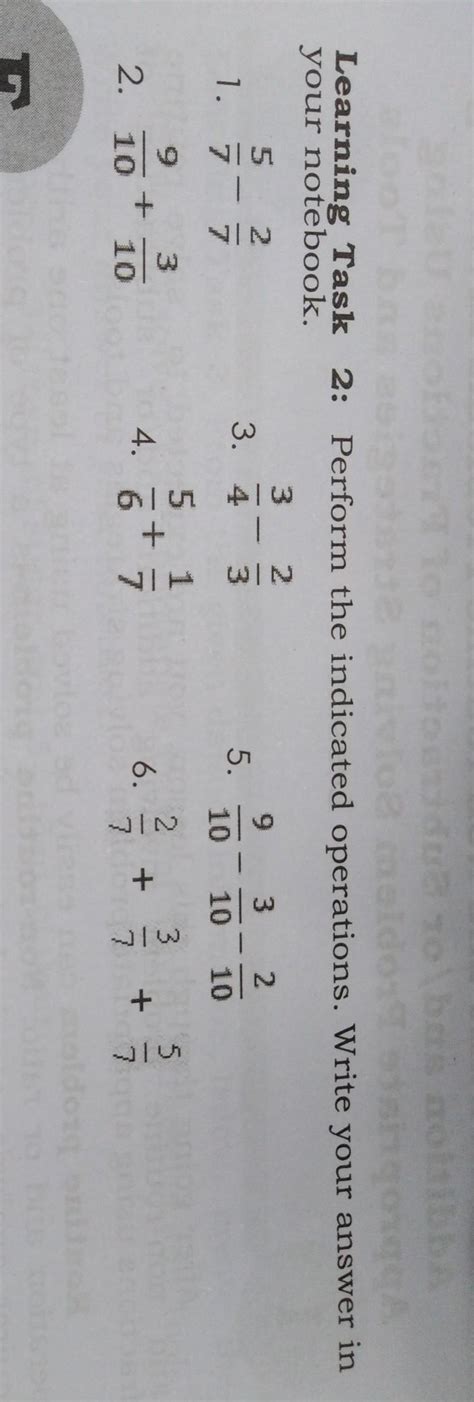 Learning Task 2: Perform the indicated operations. Write your answer in
your notebook.
1. 5/7 − 2/7
3. 3/4 − 2/3
5. 9/10 − 3/10 − 2/10
2. 9/10 + 3/10
4. 5/6 + 1/7
6. 2/7 + 3/7 + 5/7